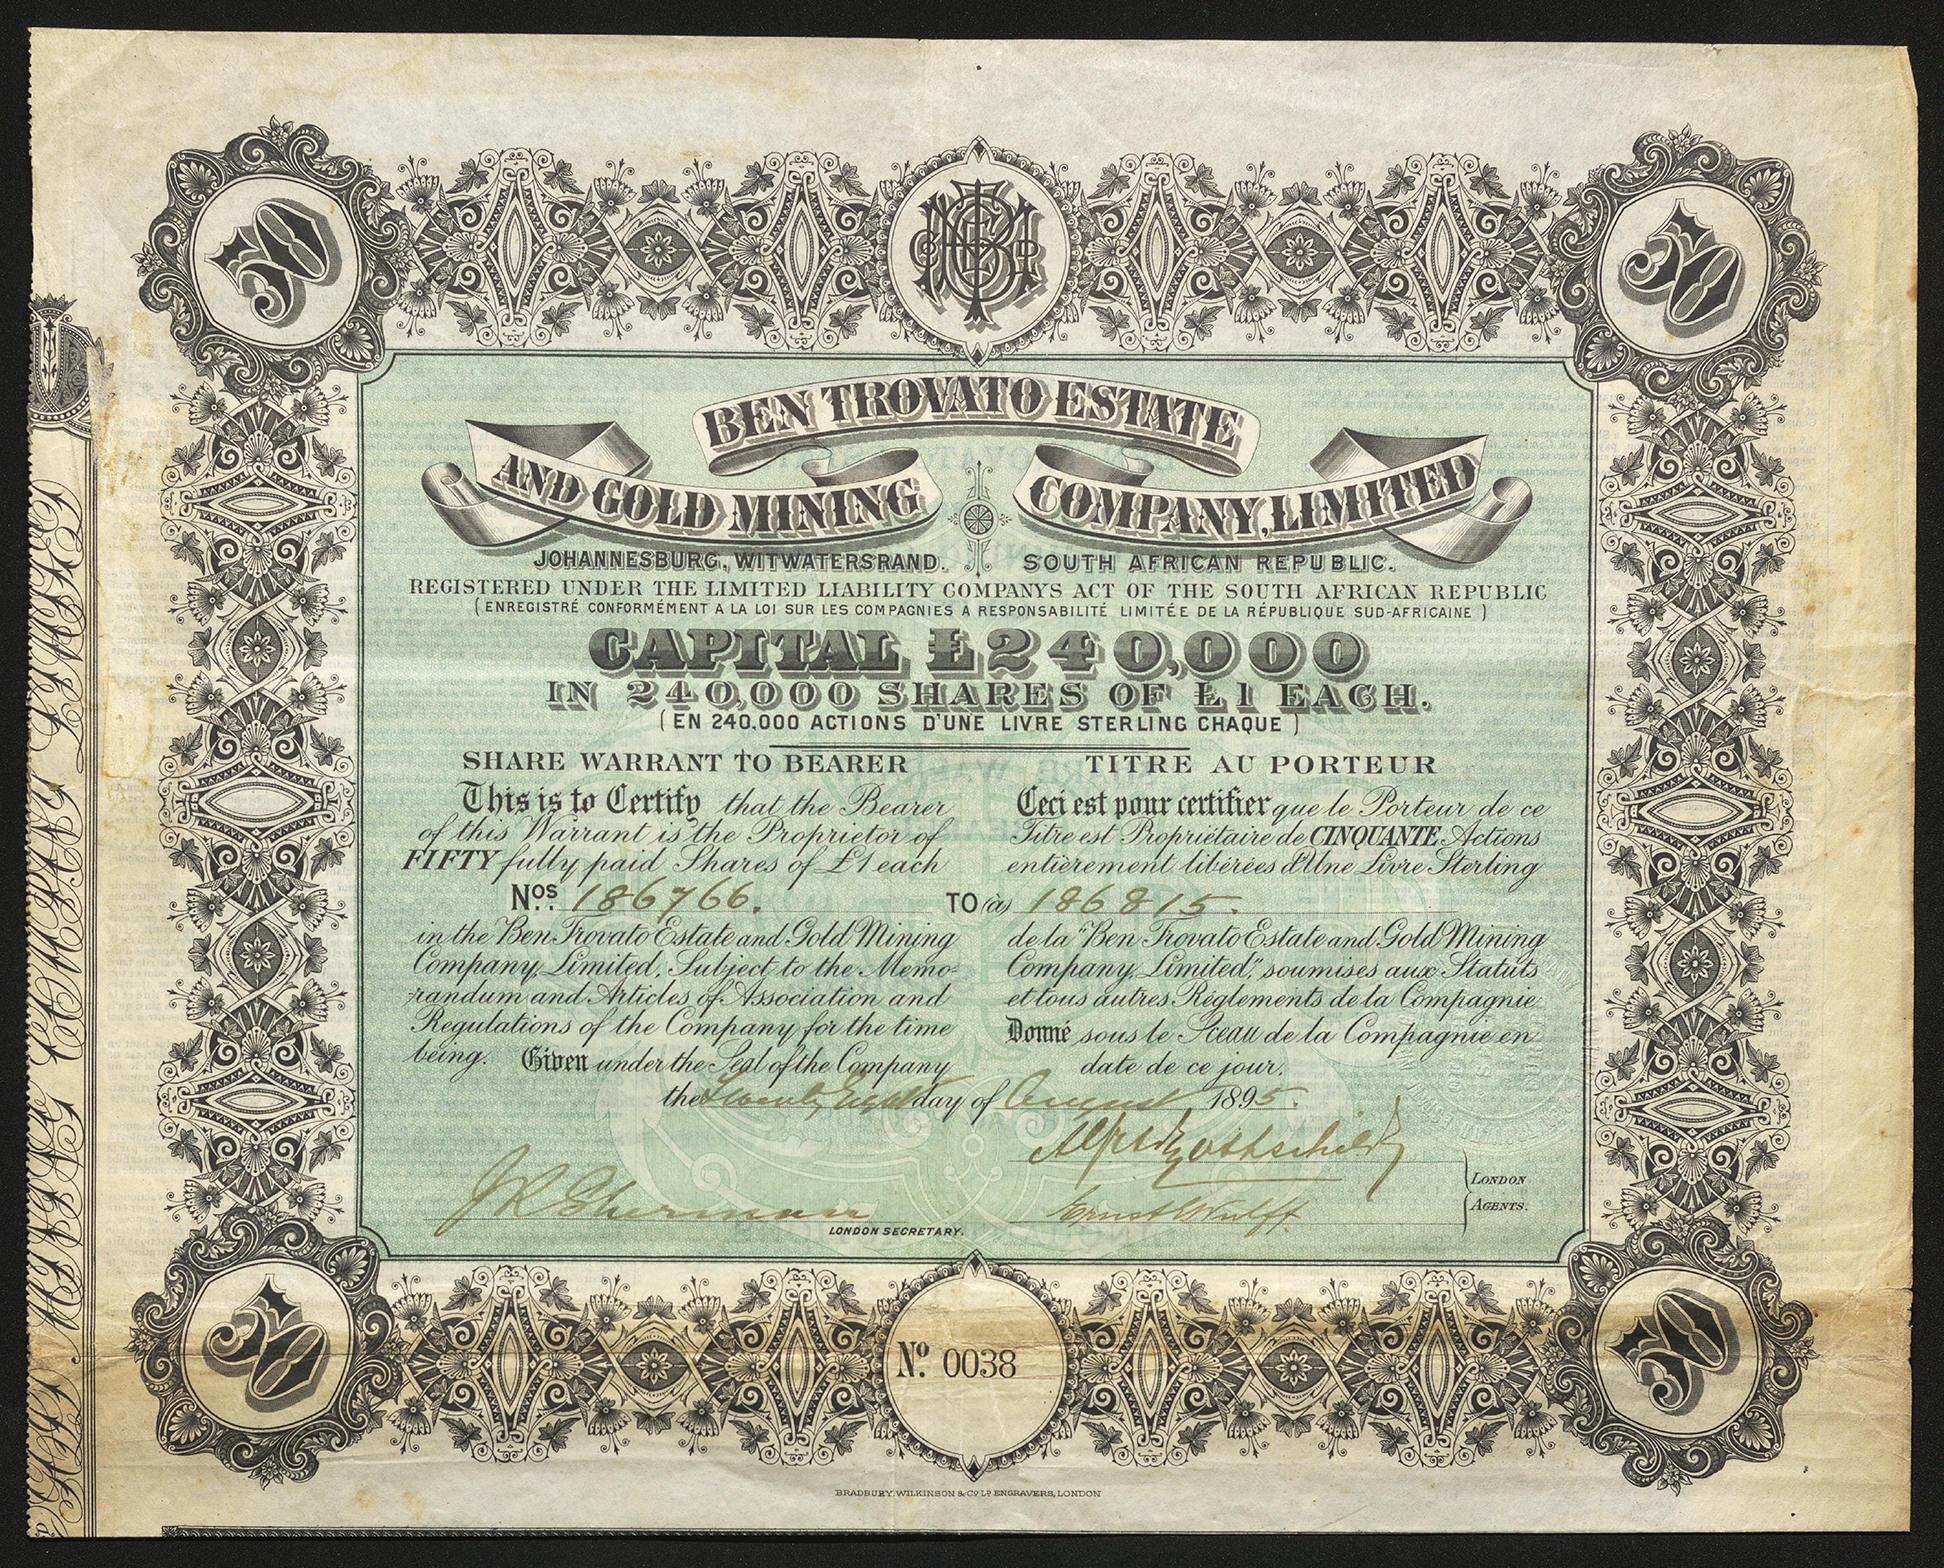 50
50
BEN TROVATO ESTATE
AND GOLD MINING COMPANY, LIMITED
JOHANNESBURG, WITWATERSRAND. SOUTH AFRICAN REPUBLIC.
REGISTERED UNDER THE LIMITED LIABILITY COMPANYS ACT OF THE SOUTH AFRICAN REPUBLIC
(ENREGISTRÉ CONFORMÉMENT A LA LOI SUR LES COMPAGNIES A RESPONSABILITÉ LIMITÉE DE LA RÉPUBLIQUE SUD-AFRICAINE)
CAPITAL £240,000
IN 240,000 SHARES OF £1 EACH.
(EN 240.000 ACTIONS D'UNE LIVRE STERLING CHAQUE)
SHARE WARRANT TO BEARER
This is to Certify that the Bearer
of this Warrant is the Proprietor of
FIFTY fully paid Shares of £1 each
TITRE AU PORTEUR
Ceci est pour certifier que le Porteur de ce
Titre est Propriétaire de CINQUANTE Actions
entièrement libérées d'Une Livre Sterling
Nos. 186766. TO (à) 186815.
in the Ben Trovato Estate and Gold Mining
Company, Limited, Subject to the Memo-
randum and Articles of Association and
Regulations of the Company for the time
being. Given under the Seal of the Company
de la "Ben Trovato Estate and Gold Mining
Company, Limited," soumises aux Statuts
et tous autres Règlements de la Compagnie
Donné sous le Sceau de la Compagnie en
date de ce jour.
the Twenty Eight day of August 1895.
J R Sherman
LONDON SECRETARY.
Ernst Wulff
LONDON
AGENTS.
50
No. 0038
50
BRADBURY, WILKINSON & Co. Ld. ENGRAVERS, LONDON